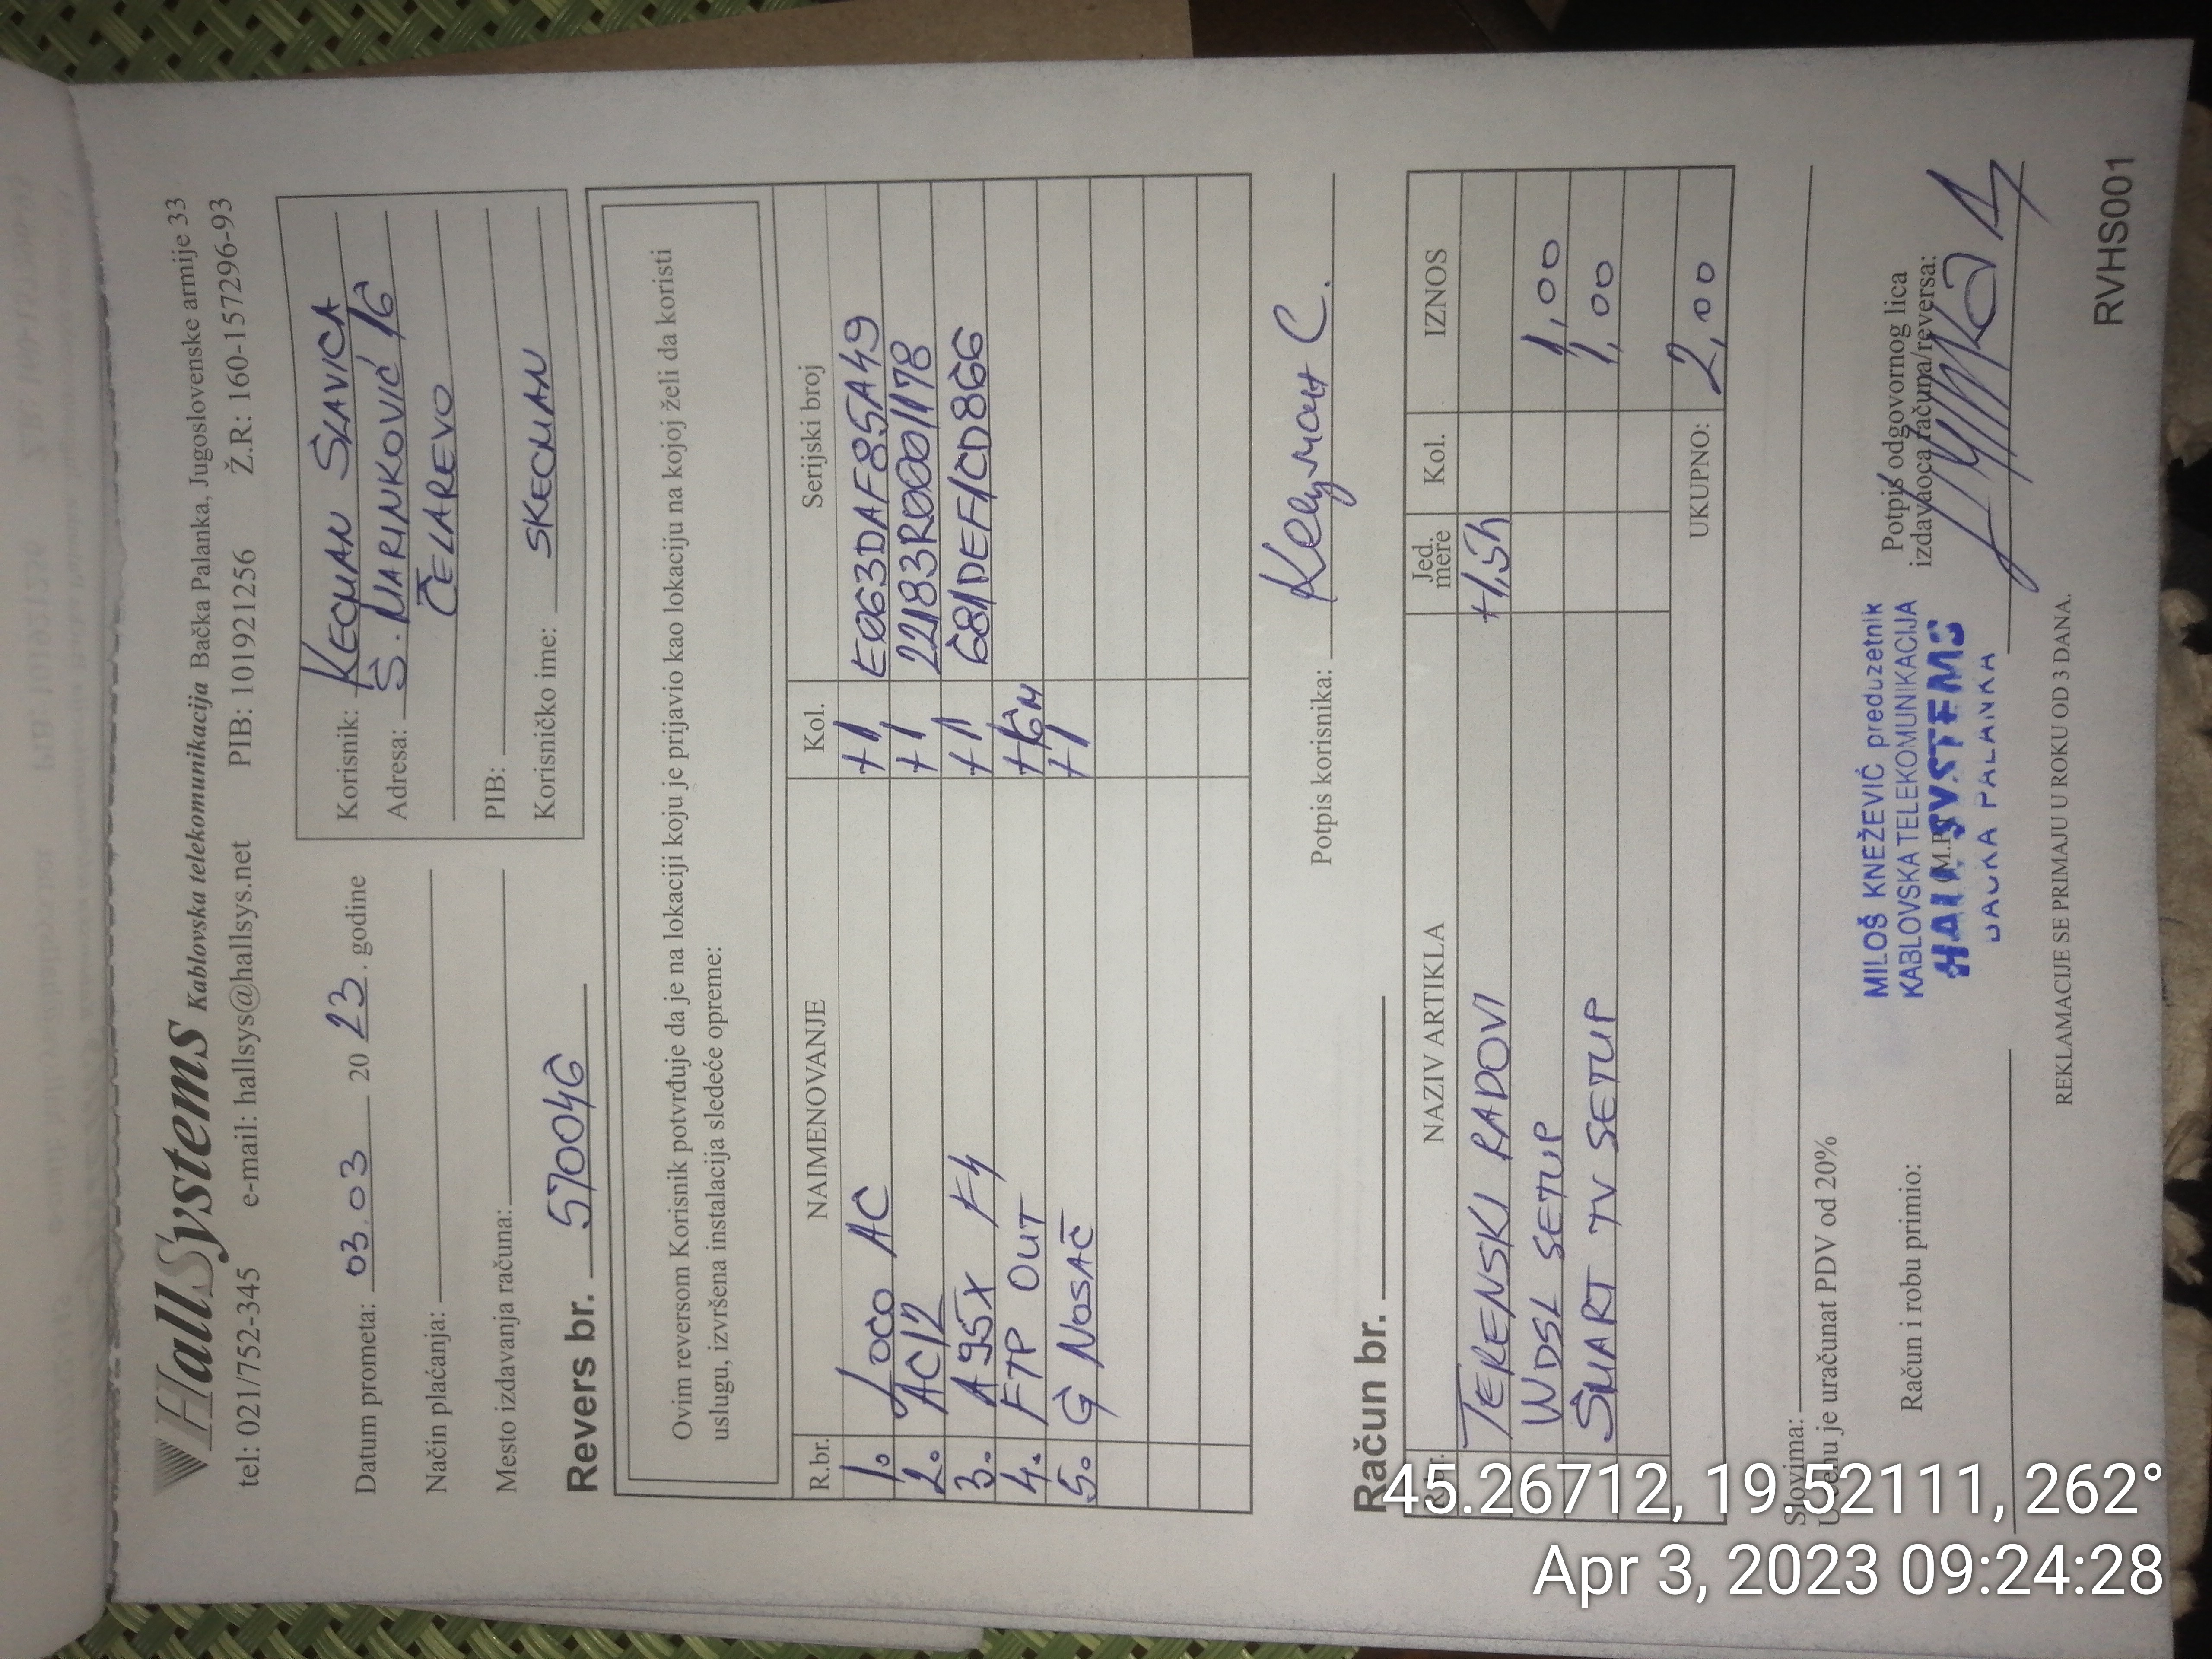 HallSystems Kablovska telekomunikacija Bačka Palanka, Jugoslovenske armije 33
tel: 021/752-345 e-mail: hallsys@hallsys.net PIB: 101921256 Ž.R: 160-157296-93
Datum prometa: 03.03 2023. godine
Način plaćanja:
Mesto izdavanja računa:
Korisnik: KECMAN SLAVICA
Adresa: S. MARINKOVIĆ 16
ČELAREVO
PIB:
Korisničko ime: SKECMAN
Revers br. 570046
Ovim reversom Korisnik potvrđuje da je na lokaciji koju je prijavio kao lokaciju na kojoj želi da koristi
uslugu, izvršena instalacija sledeće opreme:
R.br. NAIMENOVANJE Kol. Serijski broj
1. LOCO AC +1 E063DAF85A49
2. AC12 +1 22183R0001178
3. A95X F4 +1 681DEF1CD866
4. FTP OUT +16M
5. G NOSAČ +1
Potpis korisnika: Кецман С.
Račun br.
R.br. NAZIV ARTIKLA Jed. mere Kol. IZNOS
TERENSKI RADOVI +1,5h
WDSL SETUP 1,00
SMART TV SETUP 1,00
UKUPNO: 2,00
Slovima:
U cenu je uračunat PDV od 20%
Račun i robu primio:
M.P.
MILOŠ KNEŽEVIĆ preduzetnik
KABLOVSKA TELEKOMUNIKACIJA
HALL SYSTEMS
BAČKA PALANKA
Potpis odgovornog lica
izdavaoca računa/reversa:
REKLAMACIJE SE PRIMAJU U ROKU OD 3 DANA.
RVHS001
45.26712, 19.52111, 262°
Apr 3, 2023 09:24:28